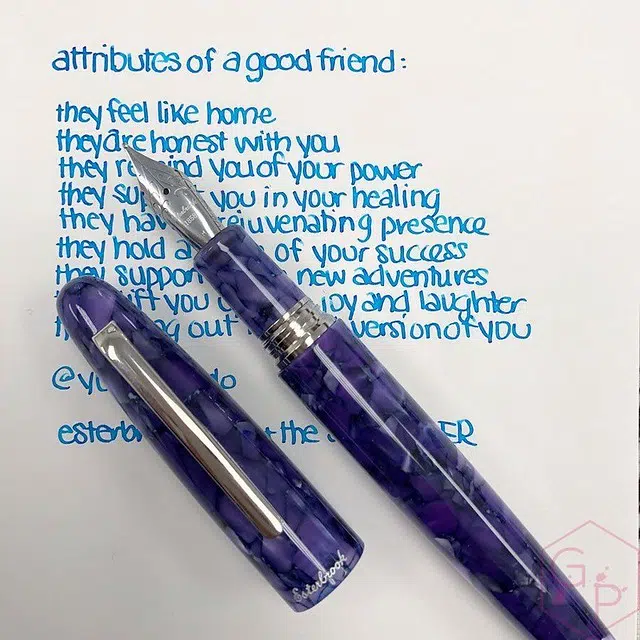 attributes of a good friend:
they feel like home
they are honest with you
they remind you of your power
they support you in your healing
they have rejuvenating presence
they hold of your success
they support new adventures
you joy and laughter
out version of you
the
Esterbrook
GP